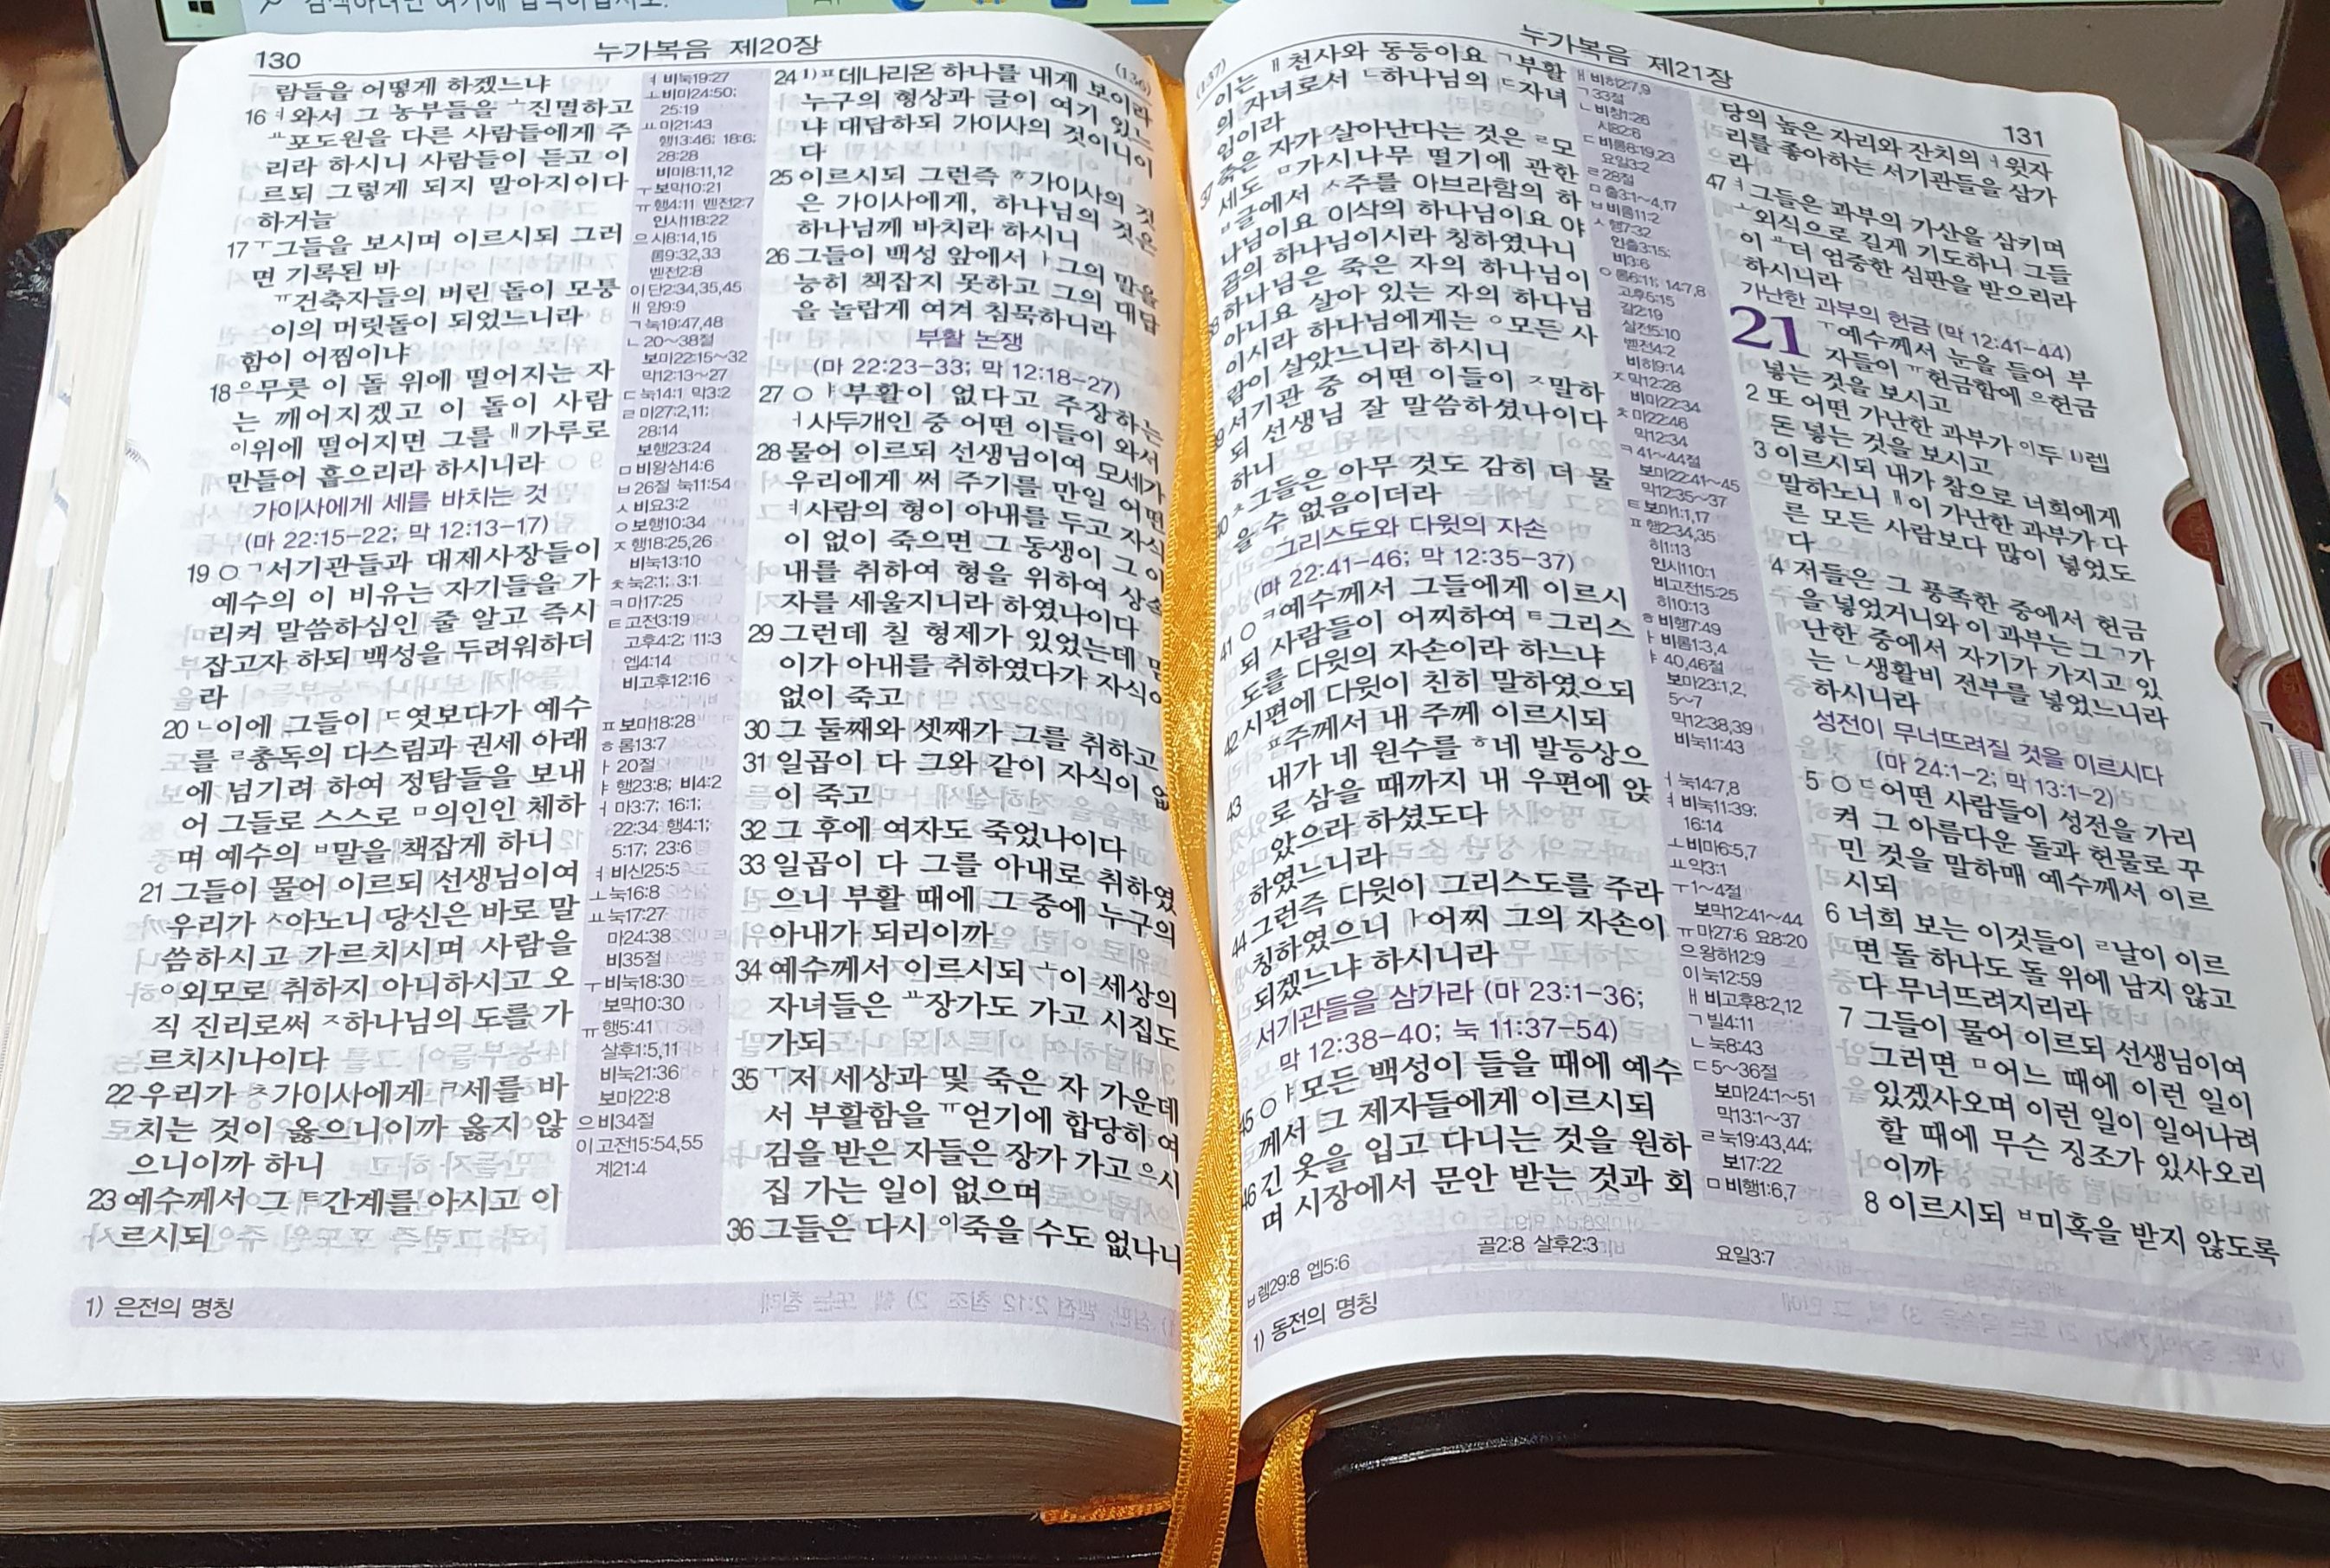 검색하려면 여기에 입력하십시오.
130
누가복음 제20장
(136)
람들을 어떻게 하겠느냐
16 ㅕ와서 그 농부들을 ㅗ진멸하고
ㅛ포도원을 다른 사람들에게 주
리라 하시니 사람들이 듣고 이
르되 그렇게 되지 말아지이다
하거늘
17 ㅜ그들을 보시며 이르시되 그러
면 기록된 바
ㅠ건축자들의 버린 돌이 모퉁
이의 머릿돌이 되었느니라
함이 어찜이냐
18 ㅡ무릇 이 돌 위에 떨어지는 자
는 깨어지겠고 이 돌이 사람
ㅣ위에 떨어지면 그를 ㅐ가루로
만들어 흩으리라 하시니라
가이사에게 세를 바치는 것
(마 22:15-22; 막 12:13-17)
19 ○ㄱ서기관들과 대제사장들이
예수의 이 비유는 자기들을 가
리켜 말씀하심인 줄 알고 즉시
잡고자 하되 백성을 두려워하더
라
20 ㄴ이에 그들이 ㄷ엿보다가 예수
를 ㄹ총독의 다스림과 권세 아래
에 넘기려 하여 정탐들을 보내
어 그들로 스스로 ㅁ의인인 체하
며 예수의 ㅂ말을 책잡게 하니
21 그들이 물어 이르되 선생님이여
우리가 ㅅ아노니 당신은 바로 말
씀하시고 가르치시며 사람을
ㅇ외모로 취하지 아니하시고 오
직 진리로써 ㅈ하나님의 도를 가
르치시나이다
22 우리가 ㅊ가이사에게 ㅋ세를 바
치는 것이 옳으니이까 옳지 않
으니이까 하니
23 예수께서 그 ㅌ간계를 아시고 이
르시되
ㅕ비눅19:27
ㅗ비마24:50;
25:19
ㅛ마21:43
행13:46; 18:6;
28:28
비미8:11,12
ㅜ보막10:21
ㅠ행4:11 벧전2:7
인시118:22
으시8:14,15
롬9:32,33
벧전2:8
이단2:34,35,45
ㅐ암9:9
ㄱ눅19:47,48
ㄴ20~38절
보마22:15~32
막12:13~27
ㄷ눅14:1 막3:2
ㄹ마27:2,11;
28:14
보행23:24
ㅁ비왕상14:6
ㅂ26절 눅11:54
ㅅ비요3:2
ㅇ보행10:34
ㅈ행18:25,26
비눅13:10
ㅊ눅2:1; 3:1
ㅋ마17:25
ㅌ고전3:19
고후4:2; 11:3
엡4:14
비고후12:16
ㅍ보마18:28
ㅎ롬13:7
ㅏ20절
ㅑ행23:8; 비4:2
ㅓ마3:7; 16:1;
22:34 행4:1;
5:17; 23:6
ㅕ비신25:5
ㅗ눅16:8
ㅛ눅17:27
마24:38
비35절
ㅜ비눅18:30
보막10:30
ㅠ행5:41
살후1:5,11
비눅21:36
보마22:8
으비34절
이고전15:54,55
계21:4
24 1)ㅍ데나리온 하나를 내게 보이라
누구의 형상과 글이 여기 있느
냐 대답하되 가이사의 것이니이
다
25 이르시되 그런즉 ㅎ가이사의 것
은 가이사에게, 하나님의 것은
하나님께 바치라 하시니
26 그들이 백성 앞에서 ㅏ그의 말을
능히 책잡지 못하고 그의 대답
을 놀랍게 여겨 침묵하니라
부활 논쟁
(마 22:23-33; 막 12:18-27)
27 ○ㅑ부활이 없다고 주장하는
ㅓ사두개인 중 어떤 이들이 와서
28 물어 이르되 선생님이여 모세가
우리에게 써 주기를 만일 어떤
ㅕ사람의 형이 아내를 두고 자식
이 없이 죽으면 그 동생이 그
내를 취하여 형을 위하여
자를 세울지니라 하였나이다
29 그런데 칠 형제가 있었는데
이가 아내를 취하였다가 자식이
없이 죽고
30 그 둘째와 셋째가 그를 취하고
31 일곱이 다 그와 같이 자식이 없
이 죽고
32 그 후에 여자도 죽었나이다
33 일곱이 다 그를 아내로 취하였
으니 부활 때에 그 중에 누구의
아내가 되리이까
34 예수께서 이르시되 ㅗ이 세상의
자녀들은 ㅛ장가도 가고 시집도
가되
35 ㅜ저 세상과 및 죽은 자 가운데
서 부활함을 ㅠ얻기에 합당히 여
김을 받은 자들은 장가 가고 으시
집 가는 일이 없으며
36 그들은 다시 이죽을 수도 없나니
1) 은전의 명칭
(137)
누가복음 제21장
131
이는 ㅐ천사와 동등이요 ㄱ부활
의 자녀로서 ㄴ하나님의 ㄷ자녀
임이라
37 죽은 자가 살아난다는 것은 ㄹ모
세도 ㅁ가시나무 떨기에 관한
ㅂ글에서 ㅅ주를 아브라함의 하
나님이요 이삭의 하나님이요 야
곱의 하나님이시라 칭하였나니
38 하나님은 죽은 자의 하나님이
아니요 살아 있는 자의 하나님
이시라 하나님에게는 ㅇ모든 사
람이 살았느니라 하시니
39 서기관 중 어떤 이들이 ㅈ말하
되 선생님 잘 말씀하셨나이다
하니
40 ㅊ그들은 아무 것도 감히 더 물
을 수 없음이더라
그리스도와 다윗의 자손
(마 22:41-46; 막 12:35-37)
41 ○ㅋ예수께서 그들에게 이르시
되 사람들이 어찌하여 ㅌ그리스
도를 다윗의 자손이라 하느냐
42 시편에 다윗이 친히 말하였으되
ㅍ주께서 내 주께 이르시되
43 내가 네 원수를 ㅎ네 발등상으
로 삼을 때까지 내 우편에 앉
았으라 하셨도다
하였느니라
44 그런즉 다윗이 그리스도를 주라
칭하였으니 ㅏ어찌 그의 자손이
되겠느냐 하시니라
서기관들을 삼가라 (마 23:1-36;
막 12:38-40; 눅 11:37-54)
45 ○ㅑ모든 백성이 들을 때에 예수
께서 그 제자들에게 이르시되
46 긴 옷을 입고 다니는 것을 원하
며 시장에서 문안 받는 것과 회
ㅐ비히2:7,9
ㄱ33절
ㄴ비창1:26
시82:6
ㄷ비롬8:19,23
요일3:2
ㄹ28절
ㅁ출3:1~4,17
ㅂ비롬11:2
ㅅ행7:32
인출3:15;
비3:6
ㅇ롬6:11; 14:7,8
고후5:15
갈2:19
살전5:10
벧전4:2
비히9:14
ㅈ막12:28
비마22:34
ㅊ마22:46
막12:34
ㅋ41~44절
보마22:41~45
막12:35~37
ㅌ보마1:1,17
ㅍ행2:34,35
히1:13
인시110:1
비고전15:25
히10:13
ㅎ비행7:49
ㅏ비롬1:3,4
ㅑ40,46절
보마23:1,2,
5~7
막12:38,39
비눅11:43
ㅓ눅14:7,8
ㅕ비눅11:39;
16:14
ㅗ비마6:5,7
ㅛ약3:1
ㅜ1~4절
보막12:41~44
ㅠ마27:6 요8:20
으왕하12:9
이눅12:59
ㅐ비고후8:2,12
ㄱ빌4:11
ㄴ눅8:43
ㄷ5~36절
보마24:1~51
막13:1~37
ㄹ눅19:43,44;
보17:22
ㅁ비행1:6,7
당의 높은 자리와 잔치의 ㅓ윗자
리를 좋아하는 서기관들을 삼가
라
47 ㅕ그들은 과부의 가산을 삼키며
ㅗ외식으로 길게 기도하니 그들
이 ㅛ더 엄중한 심판을 받으리라
하시니라
가난한 과부의 헌금 (막 12:41-44)
21 ㅜ예수께서 눈을 들어 부
자들이 ㅠ헌금함에 으헌금
넣는 것을 보시고
2 또 어떤 가난한 과부가 이두 1)렙
돈 넣는 것을 보시고
3 이르시되 내가 참으로 너희에게
말하노니 ㅐ이 가난한 과부가 다
른 모든 사람보다 많이 넣었도
다
4 저들은 그 풍족한 중에서 헌금
을 넣었거니와 이 과부는 그 ㄱ가
난한 중에서 자기가 가지고 있
는 ㄴ생활비 전부를 넣었느니라
하시니라
성전이 무너뜨려질 것을 이르시다
(마 24:1-2; 막 13:1-2)
5 ○ㄷ어떤 사람들이 성전을 가리
켜 그 아름다운 돌과 헌물로 꾸
민 것을 말하매 예수께서 이르
시되
6 너희 보는 이것들이 ㄹ날이 이르
면 돌 하나도 돌 위에 남지 않고
다 무너뜨려지리라
7 그들이 물어 이르되 선생님이여
그러면 ㅁ어느 때에 이런 일이
있겠사오며 이런 일이 일어나려
할 때에 무슨 징조가 있사오리
이까
8 이르시되 ㅂ미혹을 받지 않도록
ㅂ렘29:8 엡5:6
골2:8 살후2:3
요일3:7
1) 동전의 명칭